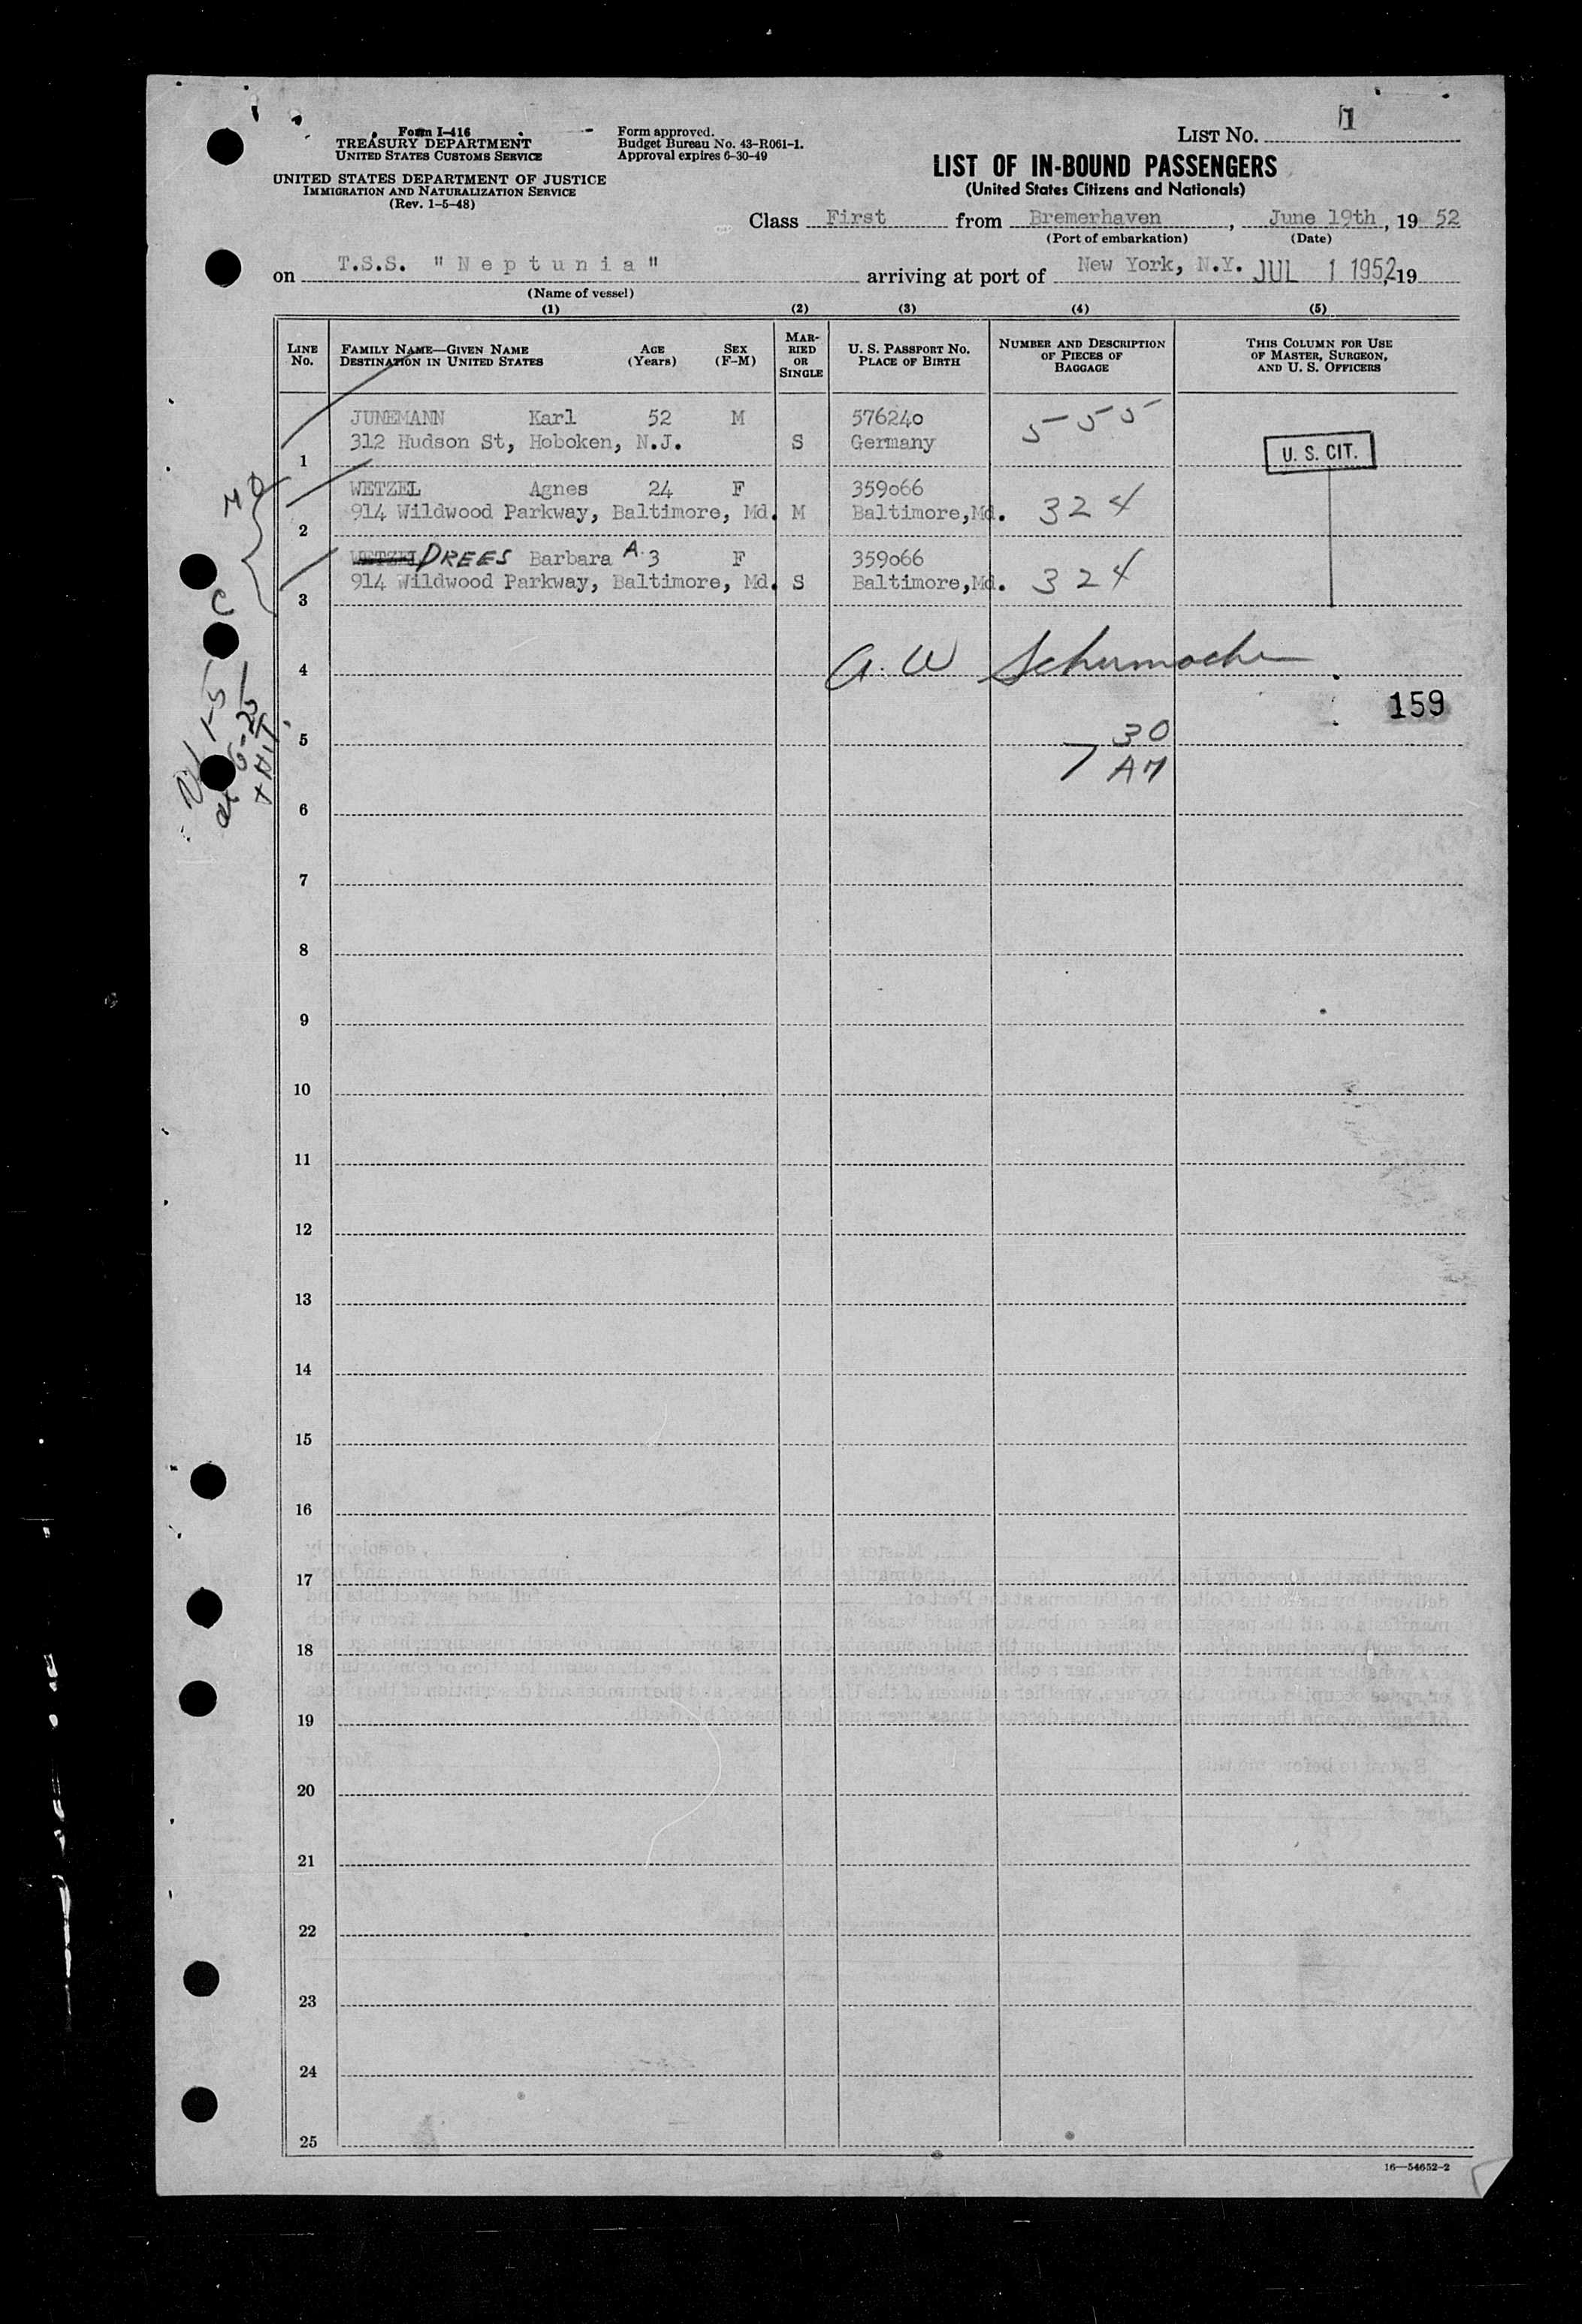 Form I-416
TREASURY DEPARTMENT
UNITED STATES CUSTOMS SERVICE
UNITED STATES DEPARTMENT OF JUSTICE
IMMIGRATION AND NATURALIZATION SERVICE
(Rev. 1-5-48)
Form approved.
Budget Bureau No. 43-R061-1.
Approval expires 6-30-49
LIST NO. 1
LIST OF IN-BOUND PASSENGERS
(United States Citizens and Nationals)
Class First from Bremerhaven, June 19th, 19 52
(Port of embarkation) (Date)
on T.S.S. "Neptunia" arriving at port of New York, N.Y. JUL 1 1952, 19
(Name of vessel)
(1) (2) (3) (4) (5)
LINE No. FAMILY NAME—GIVEN NAME DESTINATION IN UNITED STATES AGE (Years) SEX (F-M) MARRIED OR SINGLE U. S. PASSPORT NO. PLACE OF BIRTH NUMBER AND DESCRIPTION OF PIECES OF BAGGAGE THIS COLUMN FOR USE OF MASTER, SURGEON, AND U. S. OFFICERS
JUNEMANN Karl 52 M 576240 555
1 312 Hudson St, Hoboken, N.J. S Germany U. S. CIT.
WETZEL Agnes 24 F 359066
2 914 Wildwood Parkway, Baltimore, Md. M Baltimore, Md. 324
WETZEL DREES Barbara A. 3 F 359066
3 914 Wildwood Parkway, Baltimore, Md. S Baltimore, Md. 324
4 A. W Schumacher
159
5 7 30
AM
6
7
8
9
10
11
12
13
14
15
16
17
18
19
20
21
22
23
24
25
16—54652-2